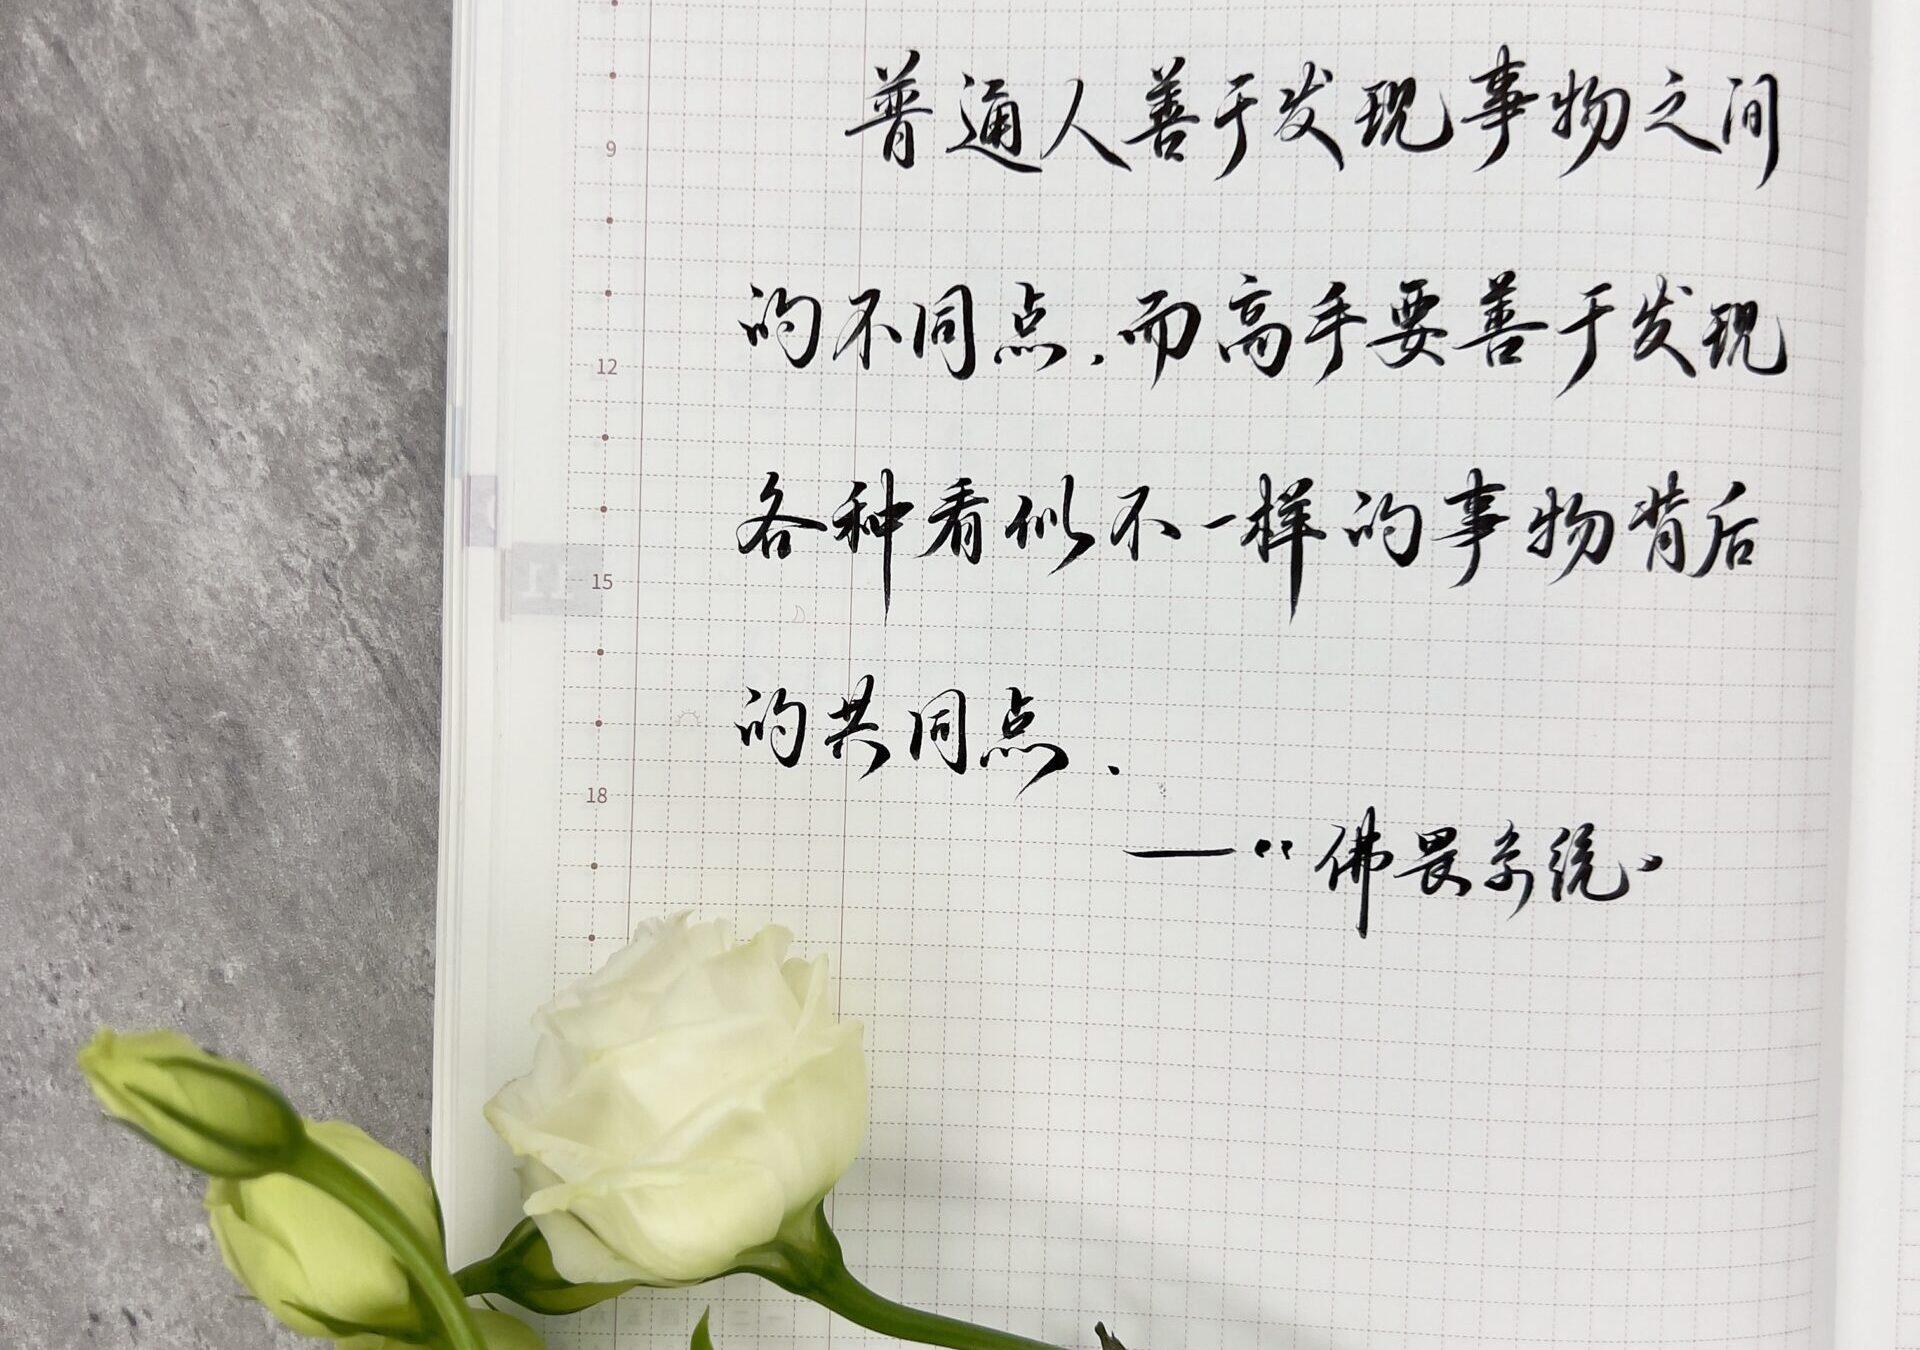 普通人善于发现事物之间
的不同点.而高手要善于发现
各种看似不一样的事物背后
的共同点.
——“佛畏系统”
9
12
15
18
11